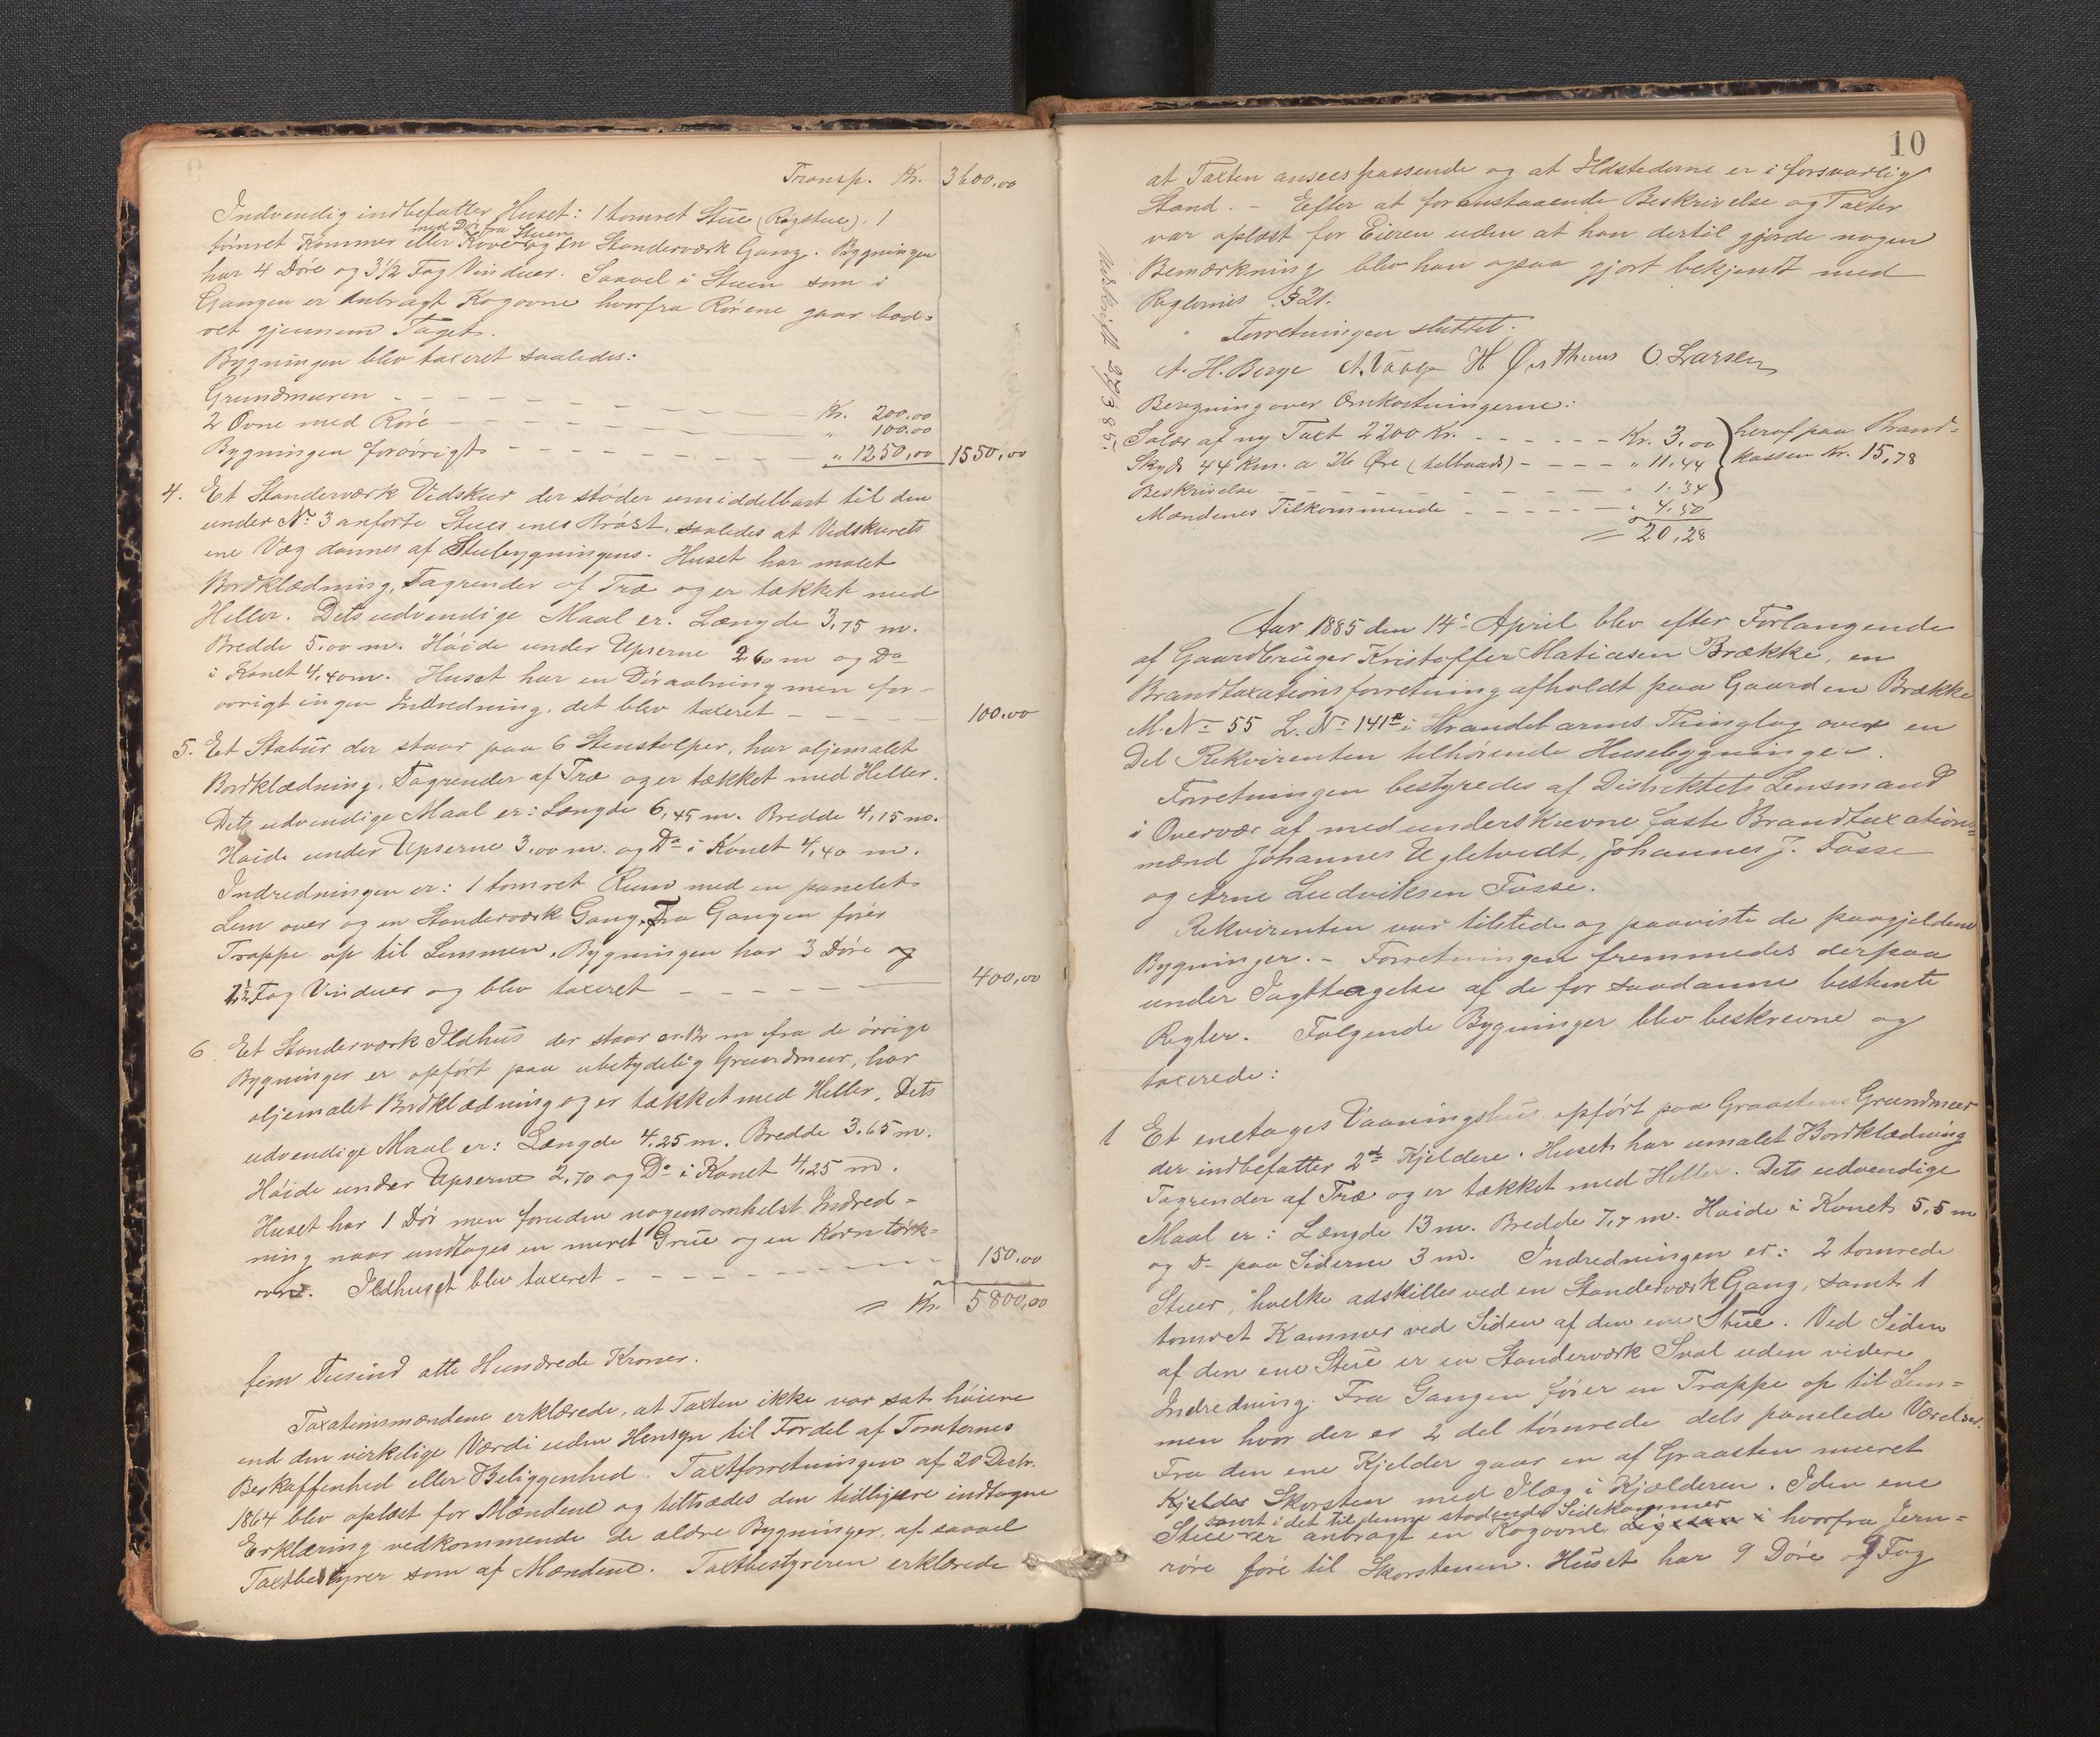 Transp. Kr. 3600,00
Indvendig indbefatter Huset: 1 tomret Stue (Rogstue), 1
med Dör fra Stuen
tömret Kammer eller Kove og en Standerværk Gang. Bygningen
har 4 Döre og 3 1/2 Fag Vinduer. Saavel i Stuen som i
Gangen er anbragt Kogovne hvorfra Rörene gaar bod-
ret gjennem Taget.
Bygningen blev taxeret saaledes:
Grundmuren - - - Kr. 200,00
2 Ovne med Rör - - - " 100,00
Bygningen forövrigt - - - " 1250,00 1550,00
4. Et Standerværk Vedskur der stöder umiddelbart til den
under No 3 anförte Stues ene Bröst, saaledes at Vedskurets
ene Væg dannes af Stuebygningens. Huset har malet
Bordklædning, Tagrender af Træ og er tækket med
Heller. Dets udvendige Maal er: Længde 3,75 m.
Bredde 5,00 m. Höide under Upserne 2,60 m og Do
i Rönet 4,40 m. Huset har en Döraabning men for-
övrigt ingen Indredning, det blev taxeret - - - 100,00
5. Et Stabur der staar paa 6 Stenstolper, har oljemalet
Bordklædning, Tagrender af Træ og er tækket med Heller.
Dets udvendige Maal er: Længde 6,45 m. Bredde 4,15 m.
Höide under Upserne 3,00 m. og Do i Rönet 4,40 m.
Indredningen er: 1 tomret Rum med en panelet
Lem over og en Standerværk Gang. Fra Gangen förer
Trappe op til Lemmen. Bygningen har 3 Döre og
1/2 Fag Vinduer og blev taxeret - - - 400,00
6. Et Standerværk Ildhus der staar cr. 12 m fra de övrige
Bygninger er opfört paa ubetydelig Grundmur, har
oljemalet Bordklædning og er tækket med Heller. Dets
udvendige Maal er: Længde 4,25 m. Bredde 3,65 m.
Höide under Upserne 2,70 og Do i Rönet 4,25 m.
Huset har 1 Dör men foruden nogensomhelst Indred-
ning naar undtages en muret Grue og en Korntörk-
ovn. Ildhuset blev taxeret - - - 150,00
= Kr. 5800,00
fem Tusind otte Hundrede Kroner.
Taxationsmændene erklærede, at Taxten ikke var sat höiere
end den virkelige Værdi uden Hensyn til Fordel af Tomternes
Beskaffenhed eller Beliggenhed. Taxtforretningen af 20 Decbr.
1864 blev oplæst for Mændene og tiltrædes den tidligere indtagne
Erklæring vedkommende de ældre Bygninger, af saavel
Taxtbestyrer som af Mændene. Taxtbestyreren erklærede
10
at Taxten ansees passende og at Ildstederne er i forsvarlig
Stand. - Efter at foranstaaende Beskrivelse og Taxter
var oplæst for Eieren uden at han dertil gjorde nogen
Bemærkning blev han ogsaa gjort bekjendt med
Reglernes § 21.
Forretningen sluttet.
A. H. Berge A. Vaage H Östhuus O. Larsen
Udskrift 27/3 85.
Beregning over Omkostningerne:
Salær af ny Taxt 2200 Kr. - - - Kr. 3,00
Skyds 44 Km. a 26 Öre (tilbaads) - - - " 11,44
Beskrivelse - - - " 1.34
heraf paa Brand-
kassen Kr. 15,78
Mændenes Tilkommende - - - " 4,50
= 20,28
Aar 1885 den 14de April blev efter Forlangende
af Gaardbruger Kristoffer Matiasen Brække, en
Brandtaxationsforretning afholdt paa Gaarden Brække
M. No 55 L. No 141a i Strandebarms Thinglag over en
Del Rekvirenten tilhörende Husebygninger.
Forretningen bestyredes af Distriktets Lensmand
i Overvær af medunderskrevne faste Brandtaxations-
mænd Johannes Ugletvedt, Johannes J. Fosse
og Arne Ludviksen Fosse.
Rekvirenten var tilstede og paaviste de paagjeldene
Bygninger. - Forretningen fremmedes derpaa
under Iagttagelse af de for saadanne bestemte
Regler. Fölgende Bygninger blev beskrevne og
taxerede:
1 Et enetages Vaaningshus opfört paa Graastens Grundmur
der indbefatter 2de Kjeldere. Huset har umalet Bordklædning
Tagrender af Træ og er tækket med Heller. Dets udvendige
Maal er: Længde 13 m. Bredde 7,7 m. Höide i Rönet 5,5 m
og Do paa Siderne 3 m. Indredningen er: 2 tomrede
Stuer, hvilke adskilles ved en Standerværk Gang, samt 1
tomret Kammer ved Siden af den ene Stue. Ved Siden
af den ene Stue er en Standerværk Sval uden videre
Indredning. Fra Gangen förer en Trappe op til Lem-
men hvor der er 2 del tömrede dels panelede Værelser.
Fra den ene Kjelder gaar en af Graasten muret
Kjelder Skorsten med Ilæg i Kjelderen. I den ene
samt i det til denne stodende Sidekammer
Stue er anbragt en Kogovne hvorfra Jern-
röre före til Skorstenen. Huset har 9 Döre og 9 Fag